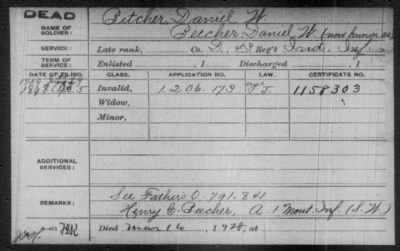 DEAD
NAME OF SOLDIER:
Pitcher, Daniel W.
Peecher, Daniel W. (now known as)
SERVICE:
Late rank, Co. D, 43 Reg't Ind. Inf.
TERM OF SERVICE:
Enlisted , 1 Discharged , 1
DATE OF FILING. CLASS. APPLICATION NO. LAW. CERTIFICATE NO.
Invalid, 1206.179 1158303
Widow,
Minor,
ADDITIONAL SERVICES:
REMARKS:
See Father's O. 791.841
Henry C. Peecher, A. 1 Mont. Inf. (S.W.)
Died Mar 16, 1928, at